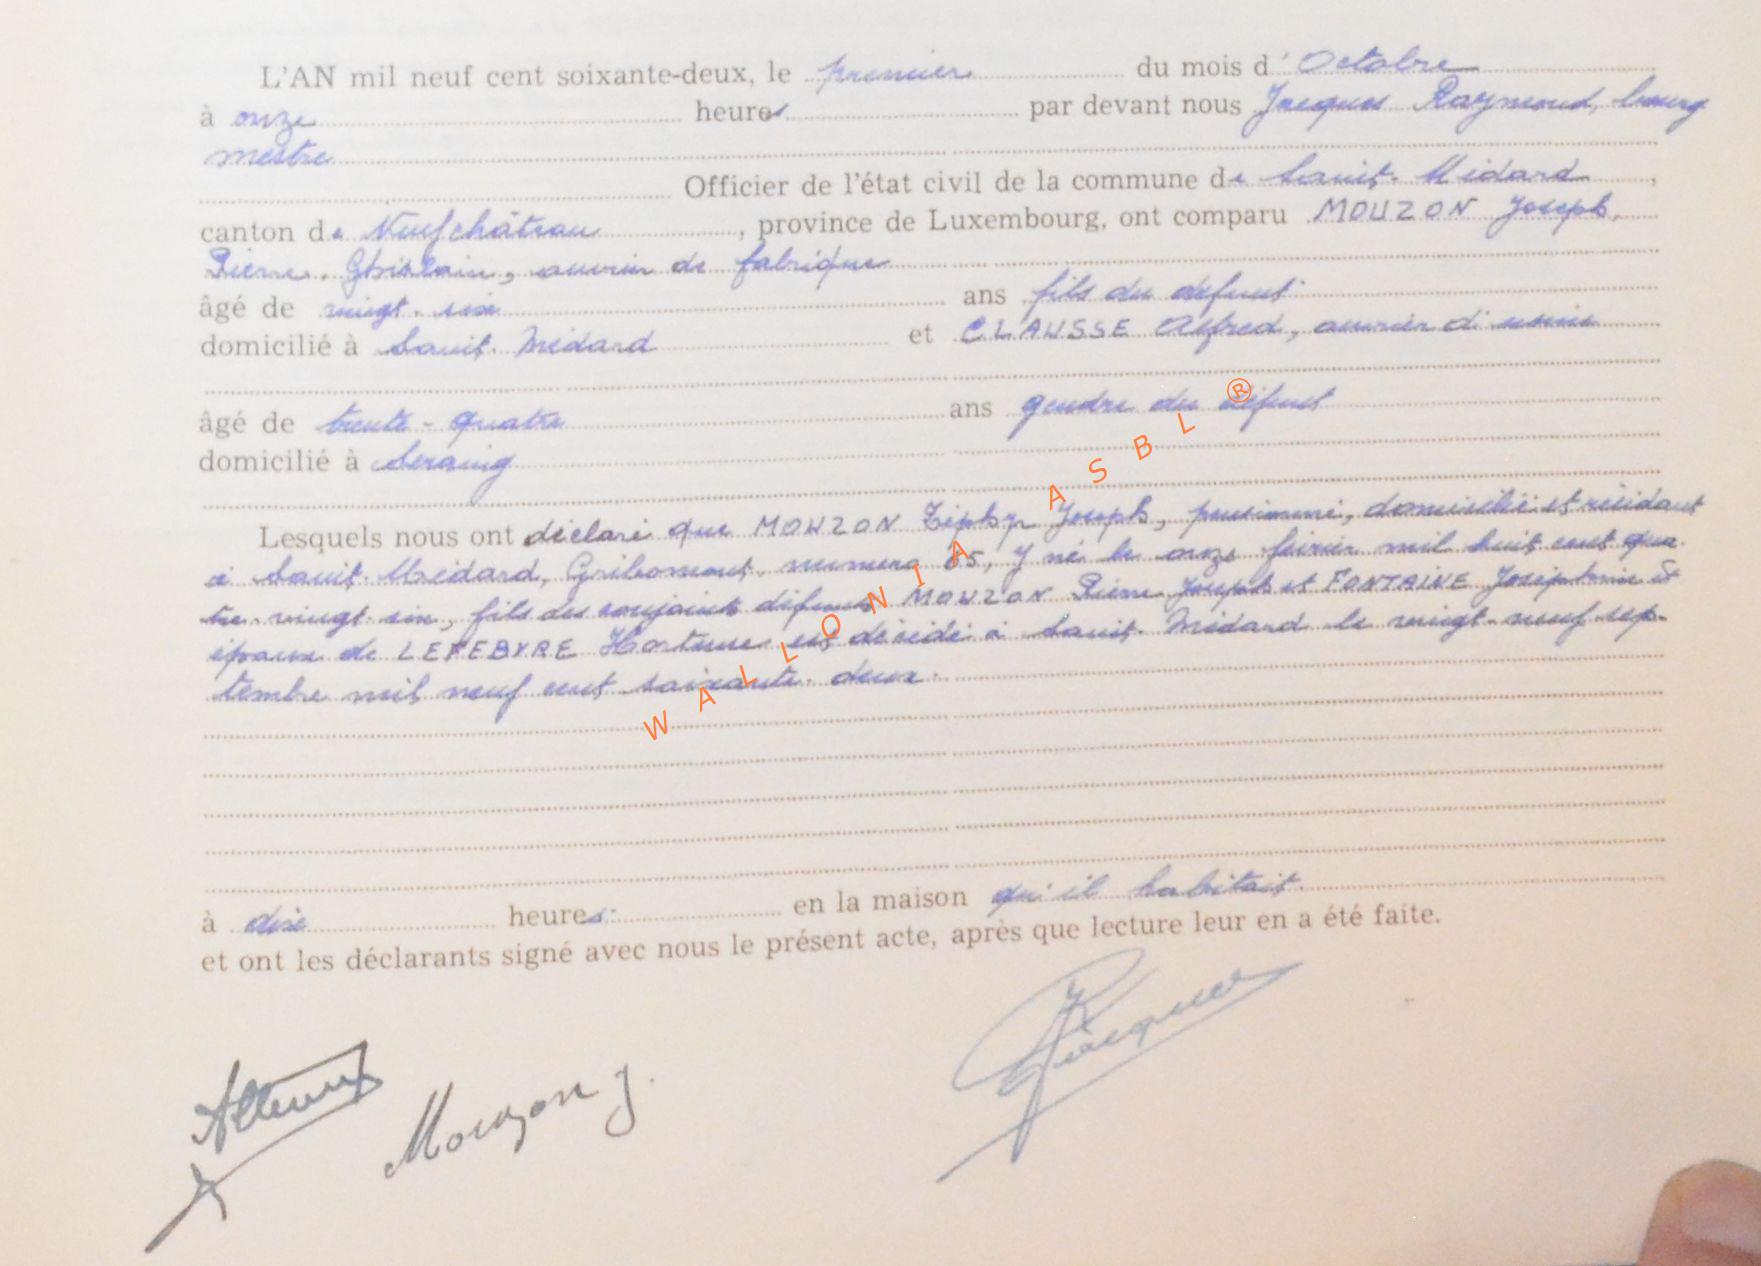 L'AN mil neuf cent soixante-deux, le premier du mois d' Octobre
à onze heures par devant nous Jacques Raymond, bourg
mestre
Officier de l'état civil de la commune de Saint-Médard,
canton de Neufchâteau, province de Luxembourg, ont comparu MOUZON Joseph,
Pierre, Ghislain, ouvrier de fabrique
âgé de vingt-six ans fils du défunt
domicilié à Saint-Médard et CLAUSSE Alfred, ouvrier d'usine
âgé de trente-quatre ans gendre du défunt
domicilié à Seraing
Lesquels nous ont déclaré que MOUZON Zéphyr Joseph, pensionné, domicilié et résidant
à Saint-Médard, Gribomont, numéro 85, y né le onze février mil huit cent qua-
tre-vingt-six, fils des conjoints défunts MOUZON Pierre Joseph et FONTAINE Joséphine et
époux de LEFEBVRE Hortense est décédé à Saint-Médard le vingt-neuf sep-
tembre mil neuf cent soixante-deux.
à dix heures en la maison qu'il habitait.
et ont les déclarants signé avec nous le présent acte, après que lecture leur en a été faite.
Mouzon J.
Jacques
WALLONIA ASBL ®